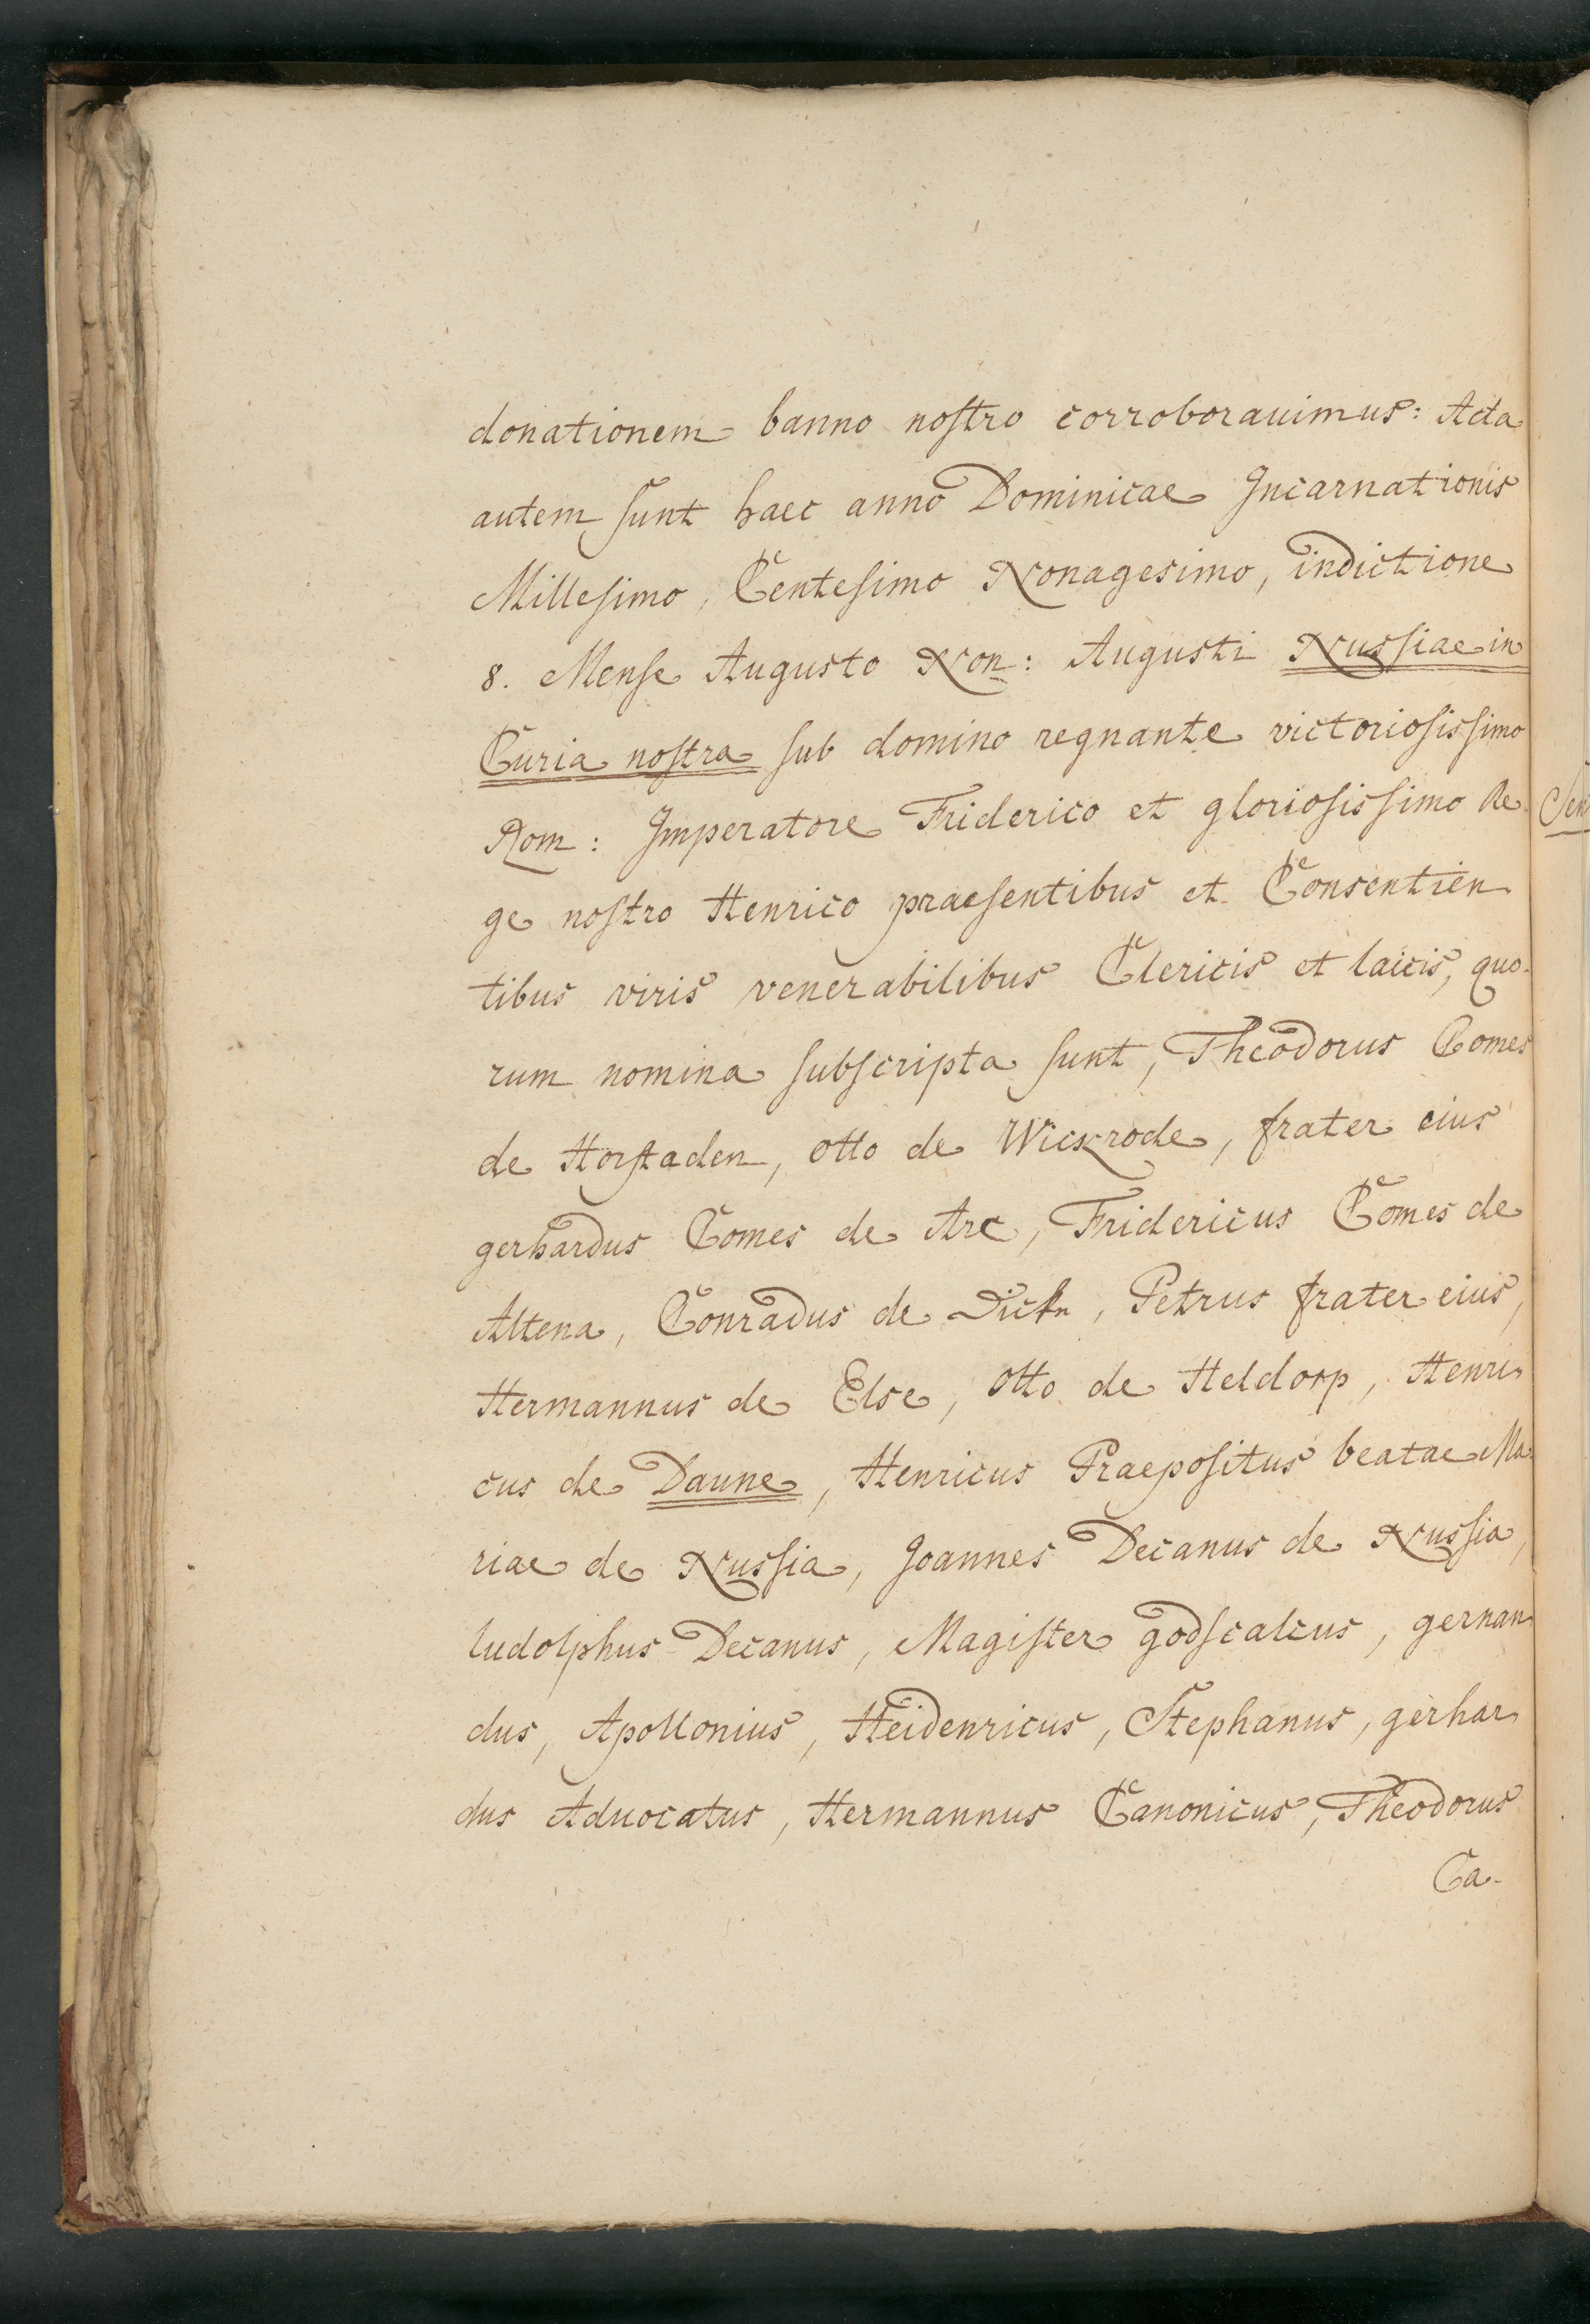 donationem banno nostro corroborauimus: Acta
autem sunt haec anno Dominicae Incarnationis
Millesimo, Centesimo Nonagesimo, indictione
8. Mense Augusto Non: Augusti Nussiae in
Curia nostra sub domino regnante victoriosissimo
Rom: Imperatore Friderico et gloriosissimo Re-
ge nostro Henrico praesentibus et Consentien
tibus viris venerabilibus Clericis et laicis, quo-
rum nomina subscripta sunt, Theodorus Comes
de Horstaden, otto de Wickrode, frater eius
gerhardus Comes de Are, Fridericus Comes de
Altena, Conradus de Dick, Petrus frater eius,
Hermannus de Else, otto de Heldorp, Henri
cus de Daune, Henricus Praepositus beatae Ma-
riae de Nussia, Joannes Decanus de Nussia,
ludolphus Decanus, Magister godscalcus, gernan
dus, Apollonius, Heidenricus, Stephanus, gerhar
dus Aduocatus, Hermannus Canonicus, Theodorus
Ca-